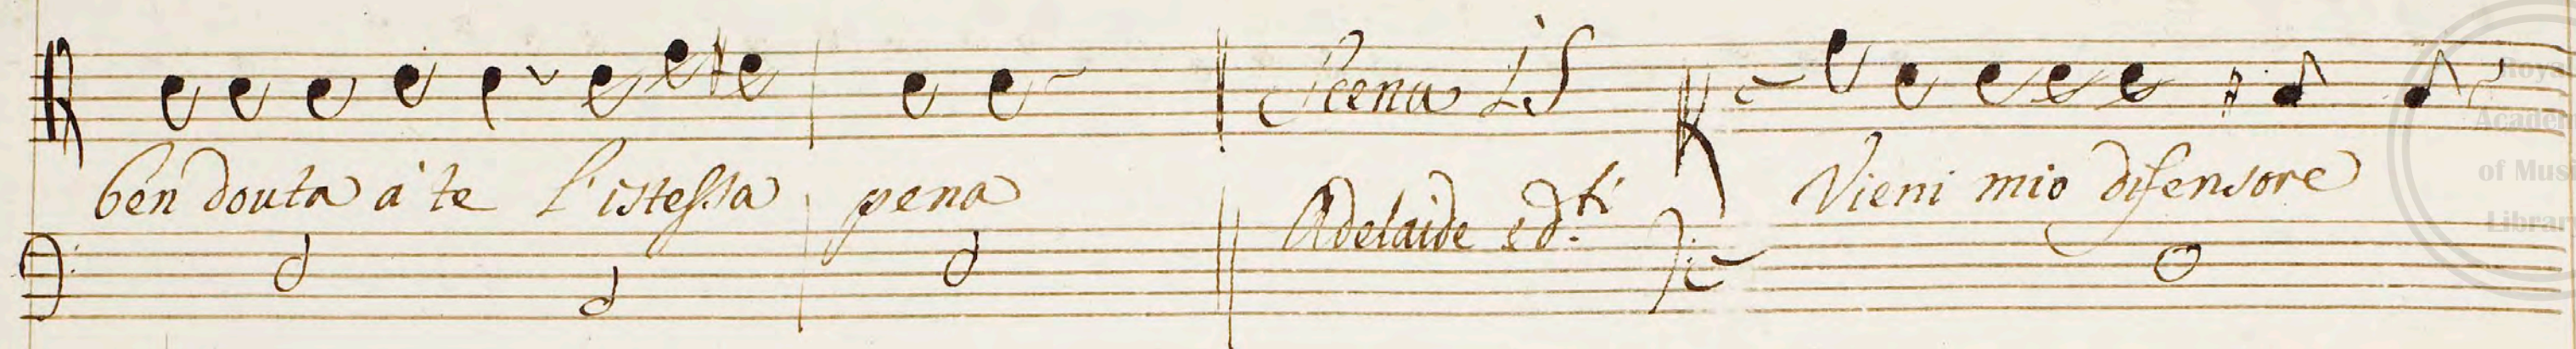 Scena
ben douta à te l'istessa pena
Adelaide e d.ti
Vieni mio difensore
Royal
Academy
of Music
Library